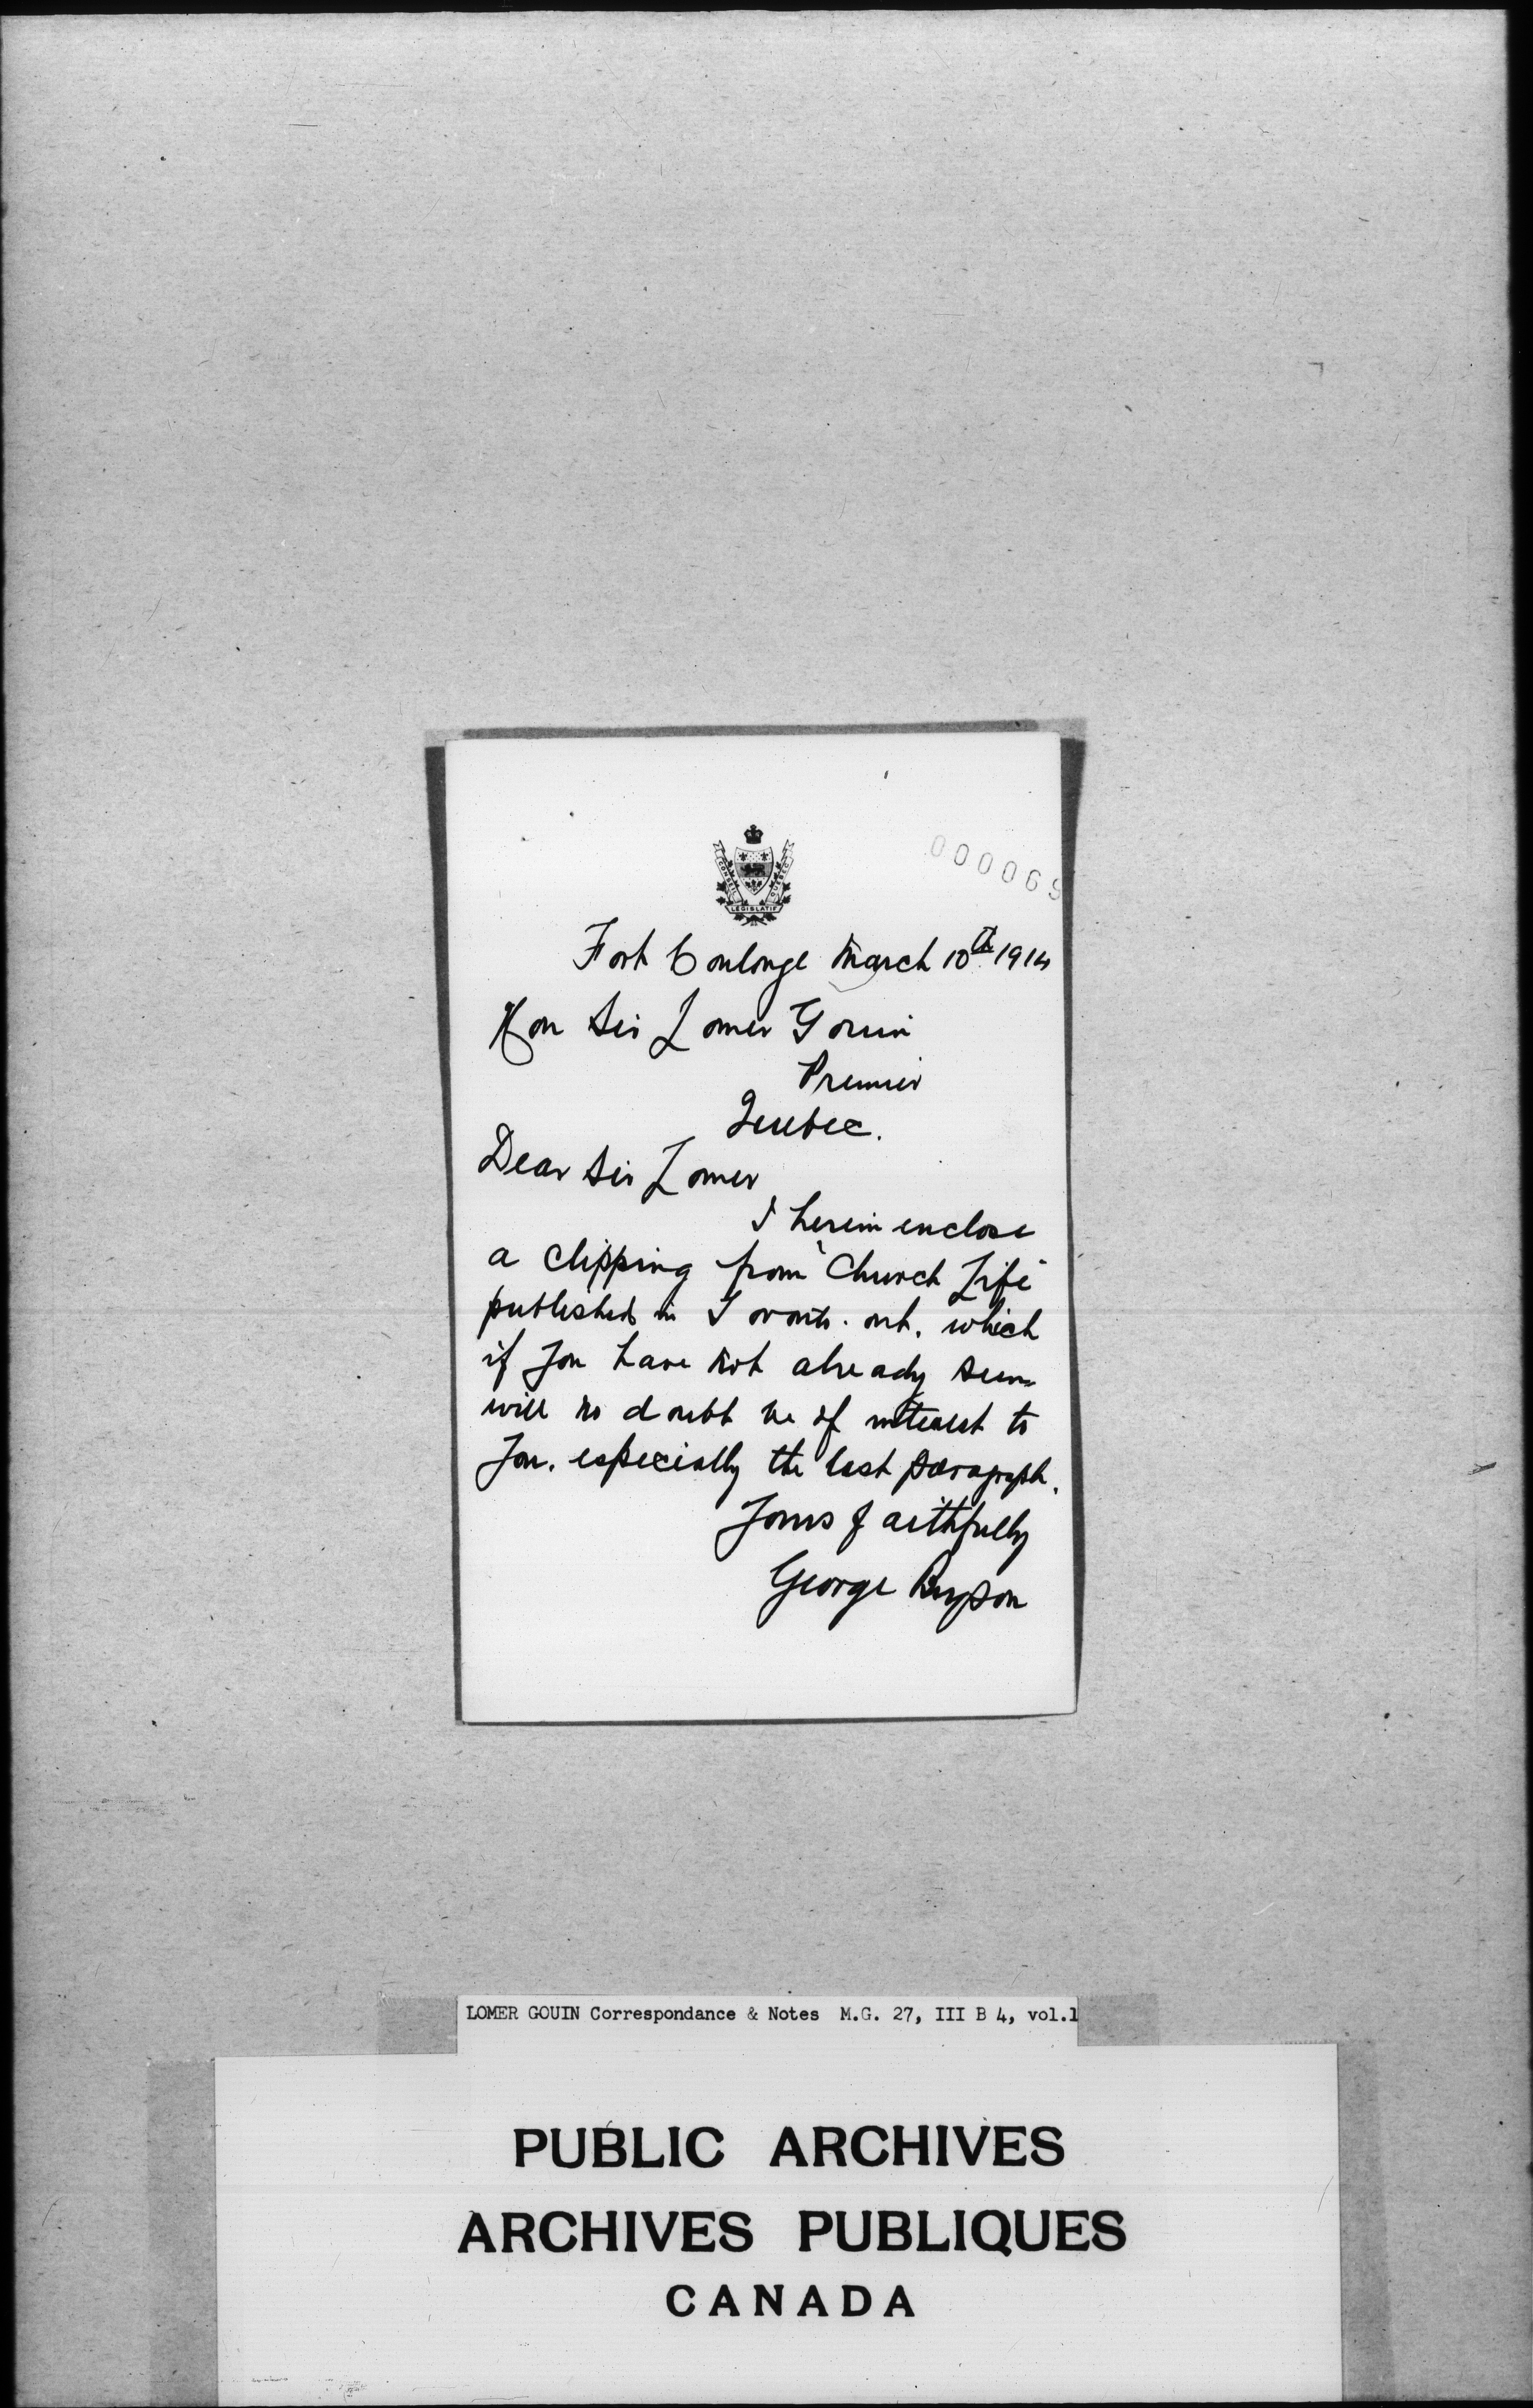 000069
CONSEIL LEGISLATIF QUEBEC
Fort Coulonge March 10th 1914
Hon Sir Lomer Gouin
Premier
Quebec.
Dear Sir Lomer
I herein enclose
a clipping from "Church Life"
published in Toronto. Ont. which
if you have not already seen
will no doubt be of interest to
you. especially the last paragraph.
Yours faithfully
George Bryson
LOMER GOUIN Correspondance & Notes M.G. 27, III B 4, vol.1
PUBLIC ARCHIVES
ARCHIVES PUBLIQUES
CANADA